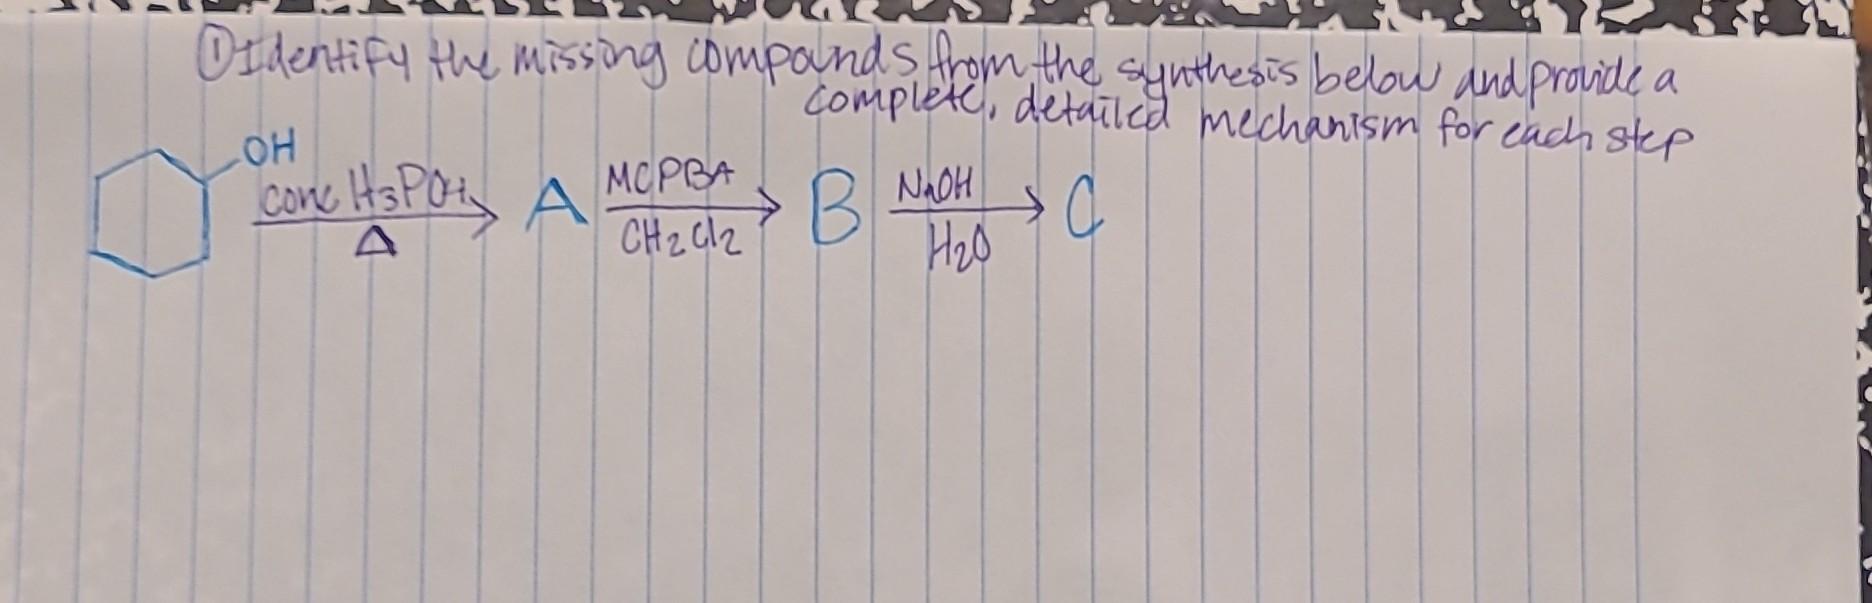 ①Identify the missing compounds from the synthesis below and provide a
complete, detailed mechanism for each step
OH
conc H3PO4
Δ
A
MCPBA
CH2Cl2
B
NaOH
H2O
C